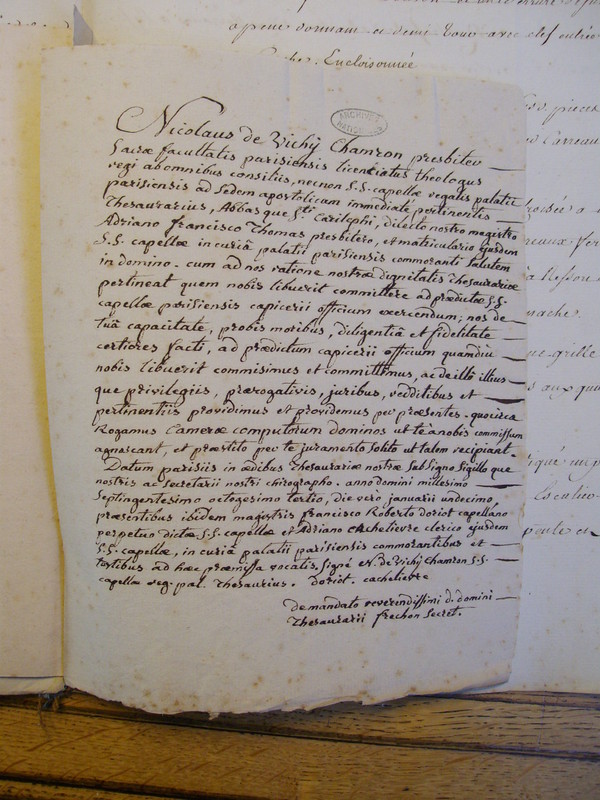 a pene donnam et demi tour avec clef entrée
Encloisonnée
ARCHIVES NATIONALES
pieces
Carreau
Nicolaus de Vichÿ Chamron presbiter
Sacræ facultatis parisiensis licentiatus theologus
regi ab omnibus consiliis, necnon S.S. capellæ regalis palatii
parisiensis ad Sedem apostolicam immediatè pertinentis
Thesaurarius, Abbas que Sti Carilephi, dilecto nostro magistro
Adriano francisco Thomas presbitero, et matriculario ejusdem
S.S. capellæ in curiâ palatii parisiensis commoranti Salutem
in domino. cum ad nos ratione nostræ dignitatis Thesaurariæ
pertineat quem nobis libuerit committere ad prædictæ S.S.
capellæ parisiensis capicerii officium exercendum; nos de
tuâ capacitate, probis moribus, diligentiâ et fidelitate
certiores facti, ad prædictum capicerii officium quamdiu
nobis libuerit commisimus et committimus, ac de illo illius
que privilegiis, prærogativis, juribus, redditibus et
pertinentiis providimus et providemus per præsentes. quocirca
Rogamus Cameræ computorum dominos ut te à nobis commissum
agnoscant, et præstito per te juramento solito ut talem recipiant.
Datum parisiis in ædibus Thesaurariæ nostræ Sub Signo Sigillo que
nostris ac Secretarii nostri chirographo. anno domini millesimo
Septingentesimo octogesimo tertio, die vero januarii undecimo,
præsentibus ibidem magistris francisco Roberto doriot capellano
perpetuo dictæ S.S. capellæ et Adriano Cachelievre clerico ejusdem
S.S. capellæ, in curiâ palatii parisiensis commorantibus et
testibus ad hæc præmissa vocatis. Signé N. de Vichÿ Chamron S.S.
capellæ reg. pal. Thesaurius. doriot. cachelievre
de mandato reverendissimi d. domini
Thesaurarii frechon Secret.